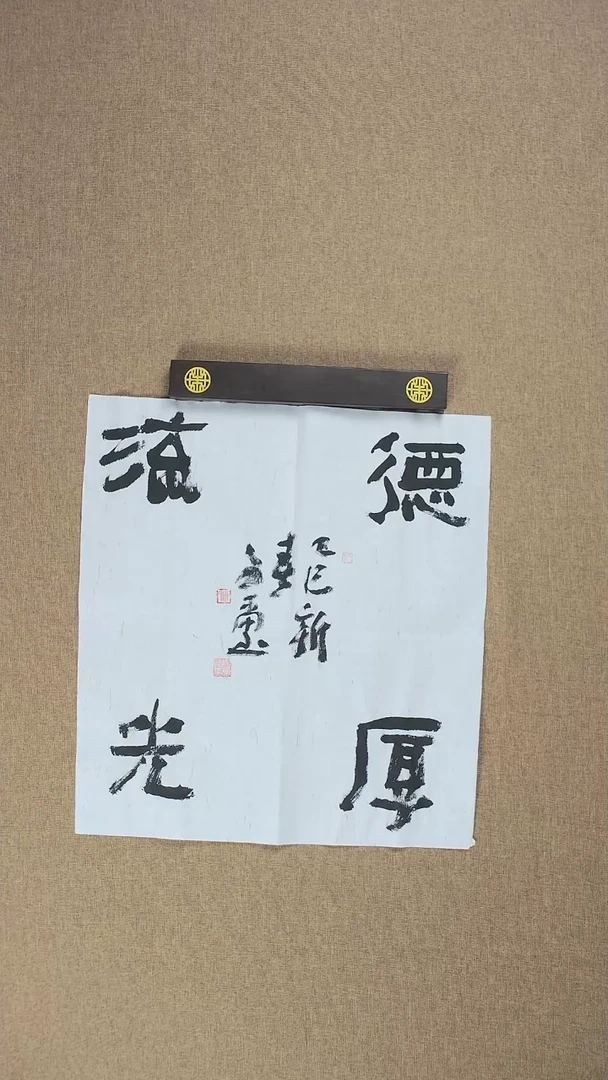 德厚
流光
乙巳新
春